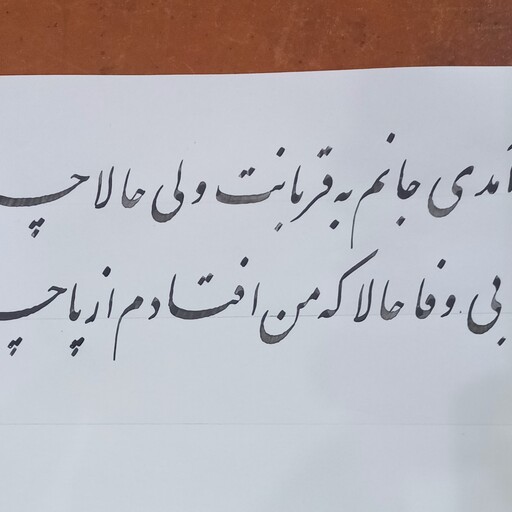 آمدی جانم به قربانت ولی حالا چ
بی وفا حالا که من افتادم از پا چ